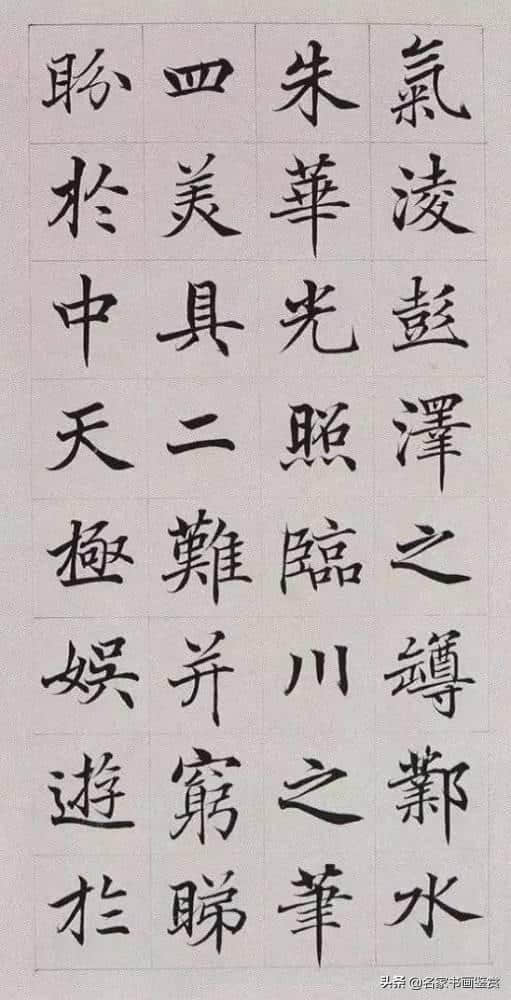 氣淩彭澤之罇鄴水
朱華光照臨川之筆
四美具二難并窮睇
盼於中天極娛遊於
头条 @名家书画鉴赏